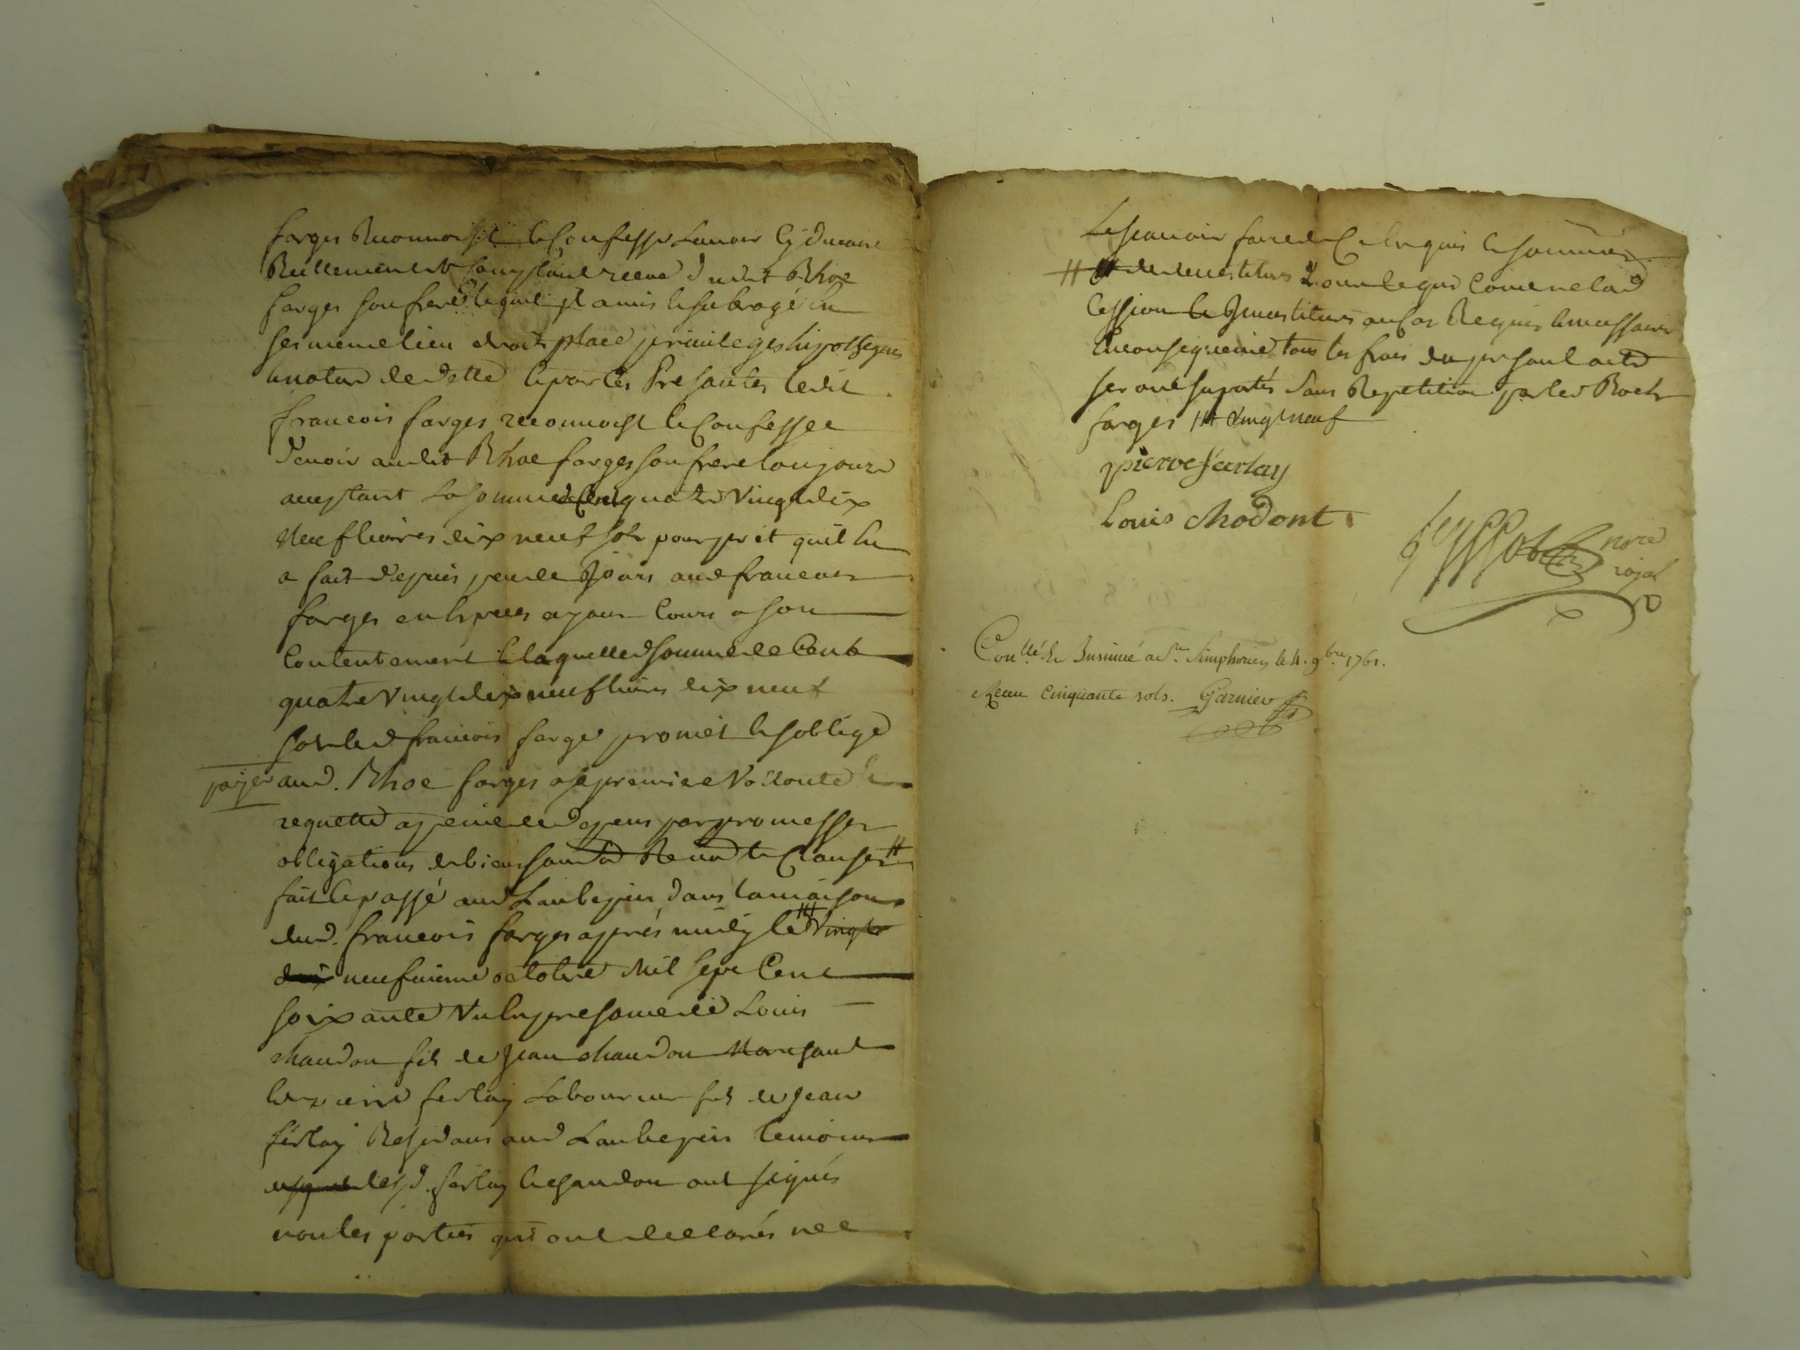 farges Reconnoist et Confesse L'avoir Cy devant
Reellement et Comptant receue dudit Rhoc
farges son frere lequel Il a mis et subrogé En
ses meme lieu droits place privileges hipotheques
nature de dette et par les Presantes ledit
francois farges reconnoist et Confesse
devoir audit Rhoc farges son frere toujours
acceptant La somme de Cent quatre Vingt dix
Neuf livres dix neuf sols pour pret quil luy
a fait depuis peu de Jours aud francois
farges en Especes ayant Cours a son
Contentement Et laquelle d somme de Cent
quatre Vingt dix neuf livres dix neuf
sols led francois farges promet et s'oblige
payer aud. Rhoc farges a sa premiere Volonté et
requette a peine de depens par promesses
obligations de biens soum.d Renon.d et Clauses #
fait et passé aud Laubepin dans la maison
dud. francois farges apprés midy le ### Vingt
dix neufvieme octobre Mil Sept Cent
soixante Un En presence de Louis
chaudon fils de Jean chaudon Marchand
et pierre ferlay Laboureur fils de Jean
ferlay Residans aud Laubepin temoins
lesd. ferlay et chaudon ont signés
non les parties qui ont declarés ne
Le scavoir faire de Ce Enquis et sommés
# de devestitures pour ce qui Concerne lad
Cession et Jnvestitures au Cas Requis et necessaire
En consequence tous les frais du present acte
seront suportés sans Repetition par led Roch
farges ### Vingt neuf
pierre ferlay
Louis chodont
nore
royal
Con.llé Et Insinué a St. Simphorien le 4. 9.bre 1761.
Receu Cinquante sols. Garnier